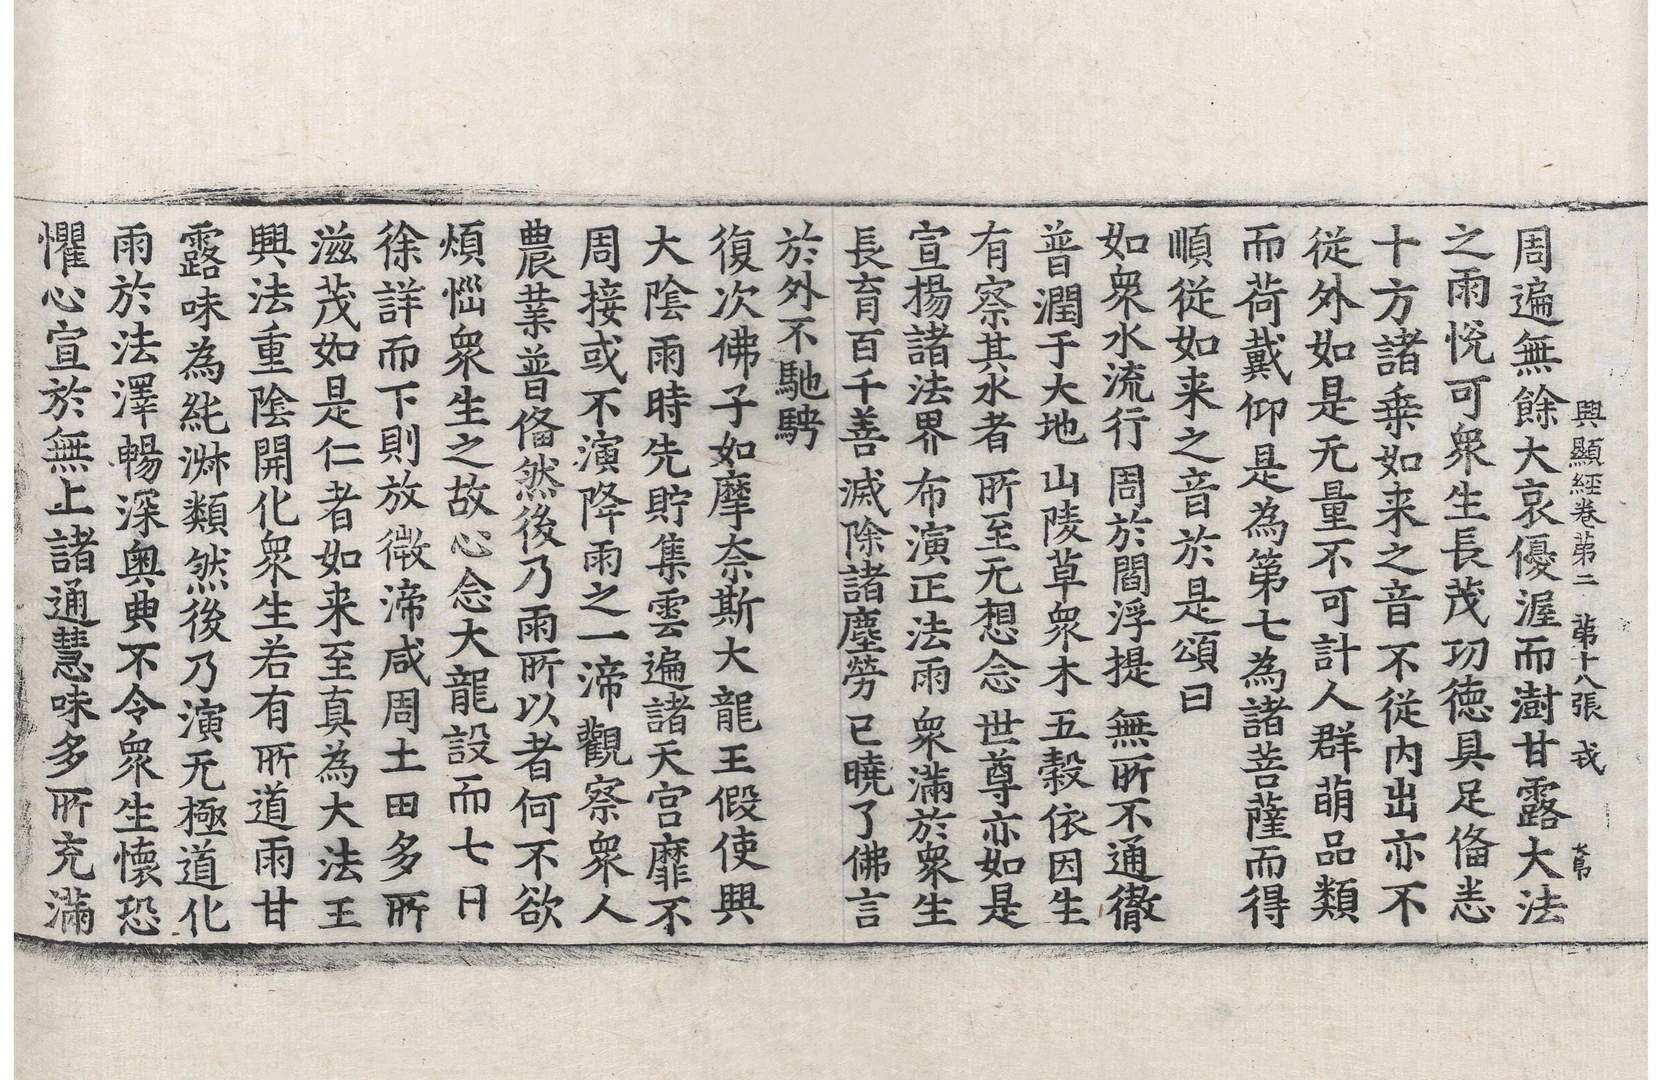 興顯經卷苐二 苐十八張 戎
周遍無餘大哀優渥而澍甘露大法
之雨恱可衆生長茂功德具足俻悉
十方諸乗如来之音不從内出亦不
從外如是无量不可計人群萌品類
而荷戴仰是為第七為諸菩薩而得
順從如来之音於是頌曰
如衆水流行 周於閻浮提 無所不通徹
普潤于大地 山陵草衆木 五糓依因生
有察其水者 所至无想念 世尊亦如是
宣揚諸法界 布演正法雨 衆滿於衆生
長育百千善 滅除諸塵勞 已曉了佛言
於外不馳騁
復次佛子如摩奈斯大龍王假使興
大隂雨時先貯集雲遍諸天宮靡不
周接或不演降雨之一渧觀察衆人
農業普俻然後乃雨所以者何不欲
煩惱衆生之故心念大龍設而七日
徐詳而下則放微渧咸周土田多所
滋茂如是仁者如来至真為大法王
興法重隂開化衆生若有所道雨甘
露味為純淋類然後乃演无極道化
雨於法澤暢深奥典不令衆生懷恐
懼心宣於無上諸通慧味多所充滿